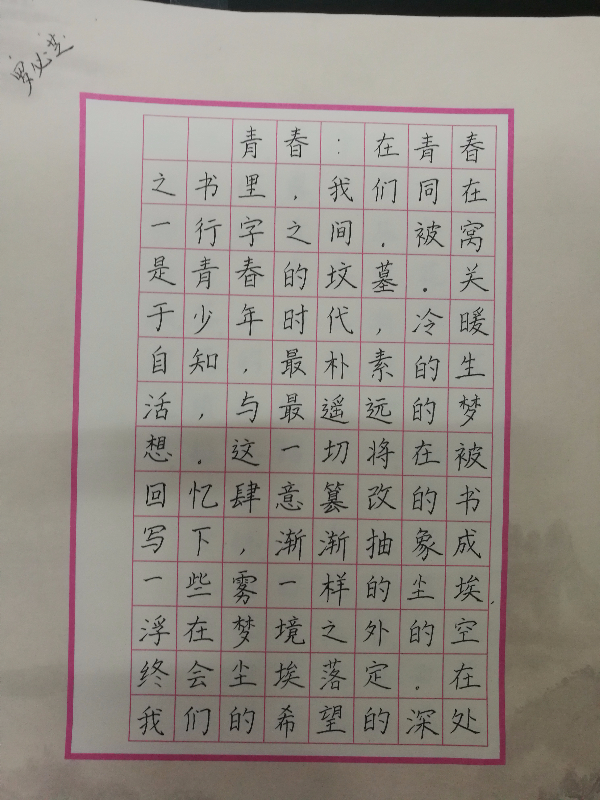 罗必芝
青春：在青春
之书里，我们同在
一行字之间．被窝
是青春的坟墓。关
于少年时代，冷暖
自知，最朴素的生
活，与最遥远的梦
想．这一切将在被
回忆肆意篡改的书
写下，渐渐抽象成
一些雾一样的尘埃，
浮在梦境之外的空
终会尘埃落定．在
我们的希望的深处